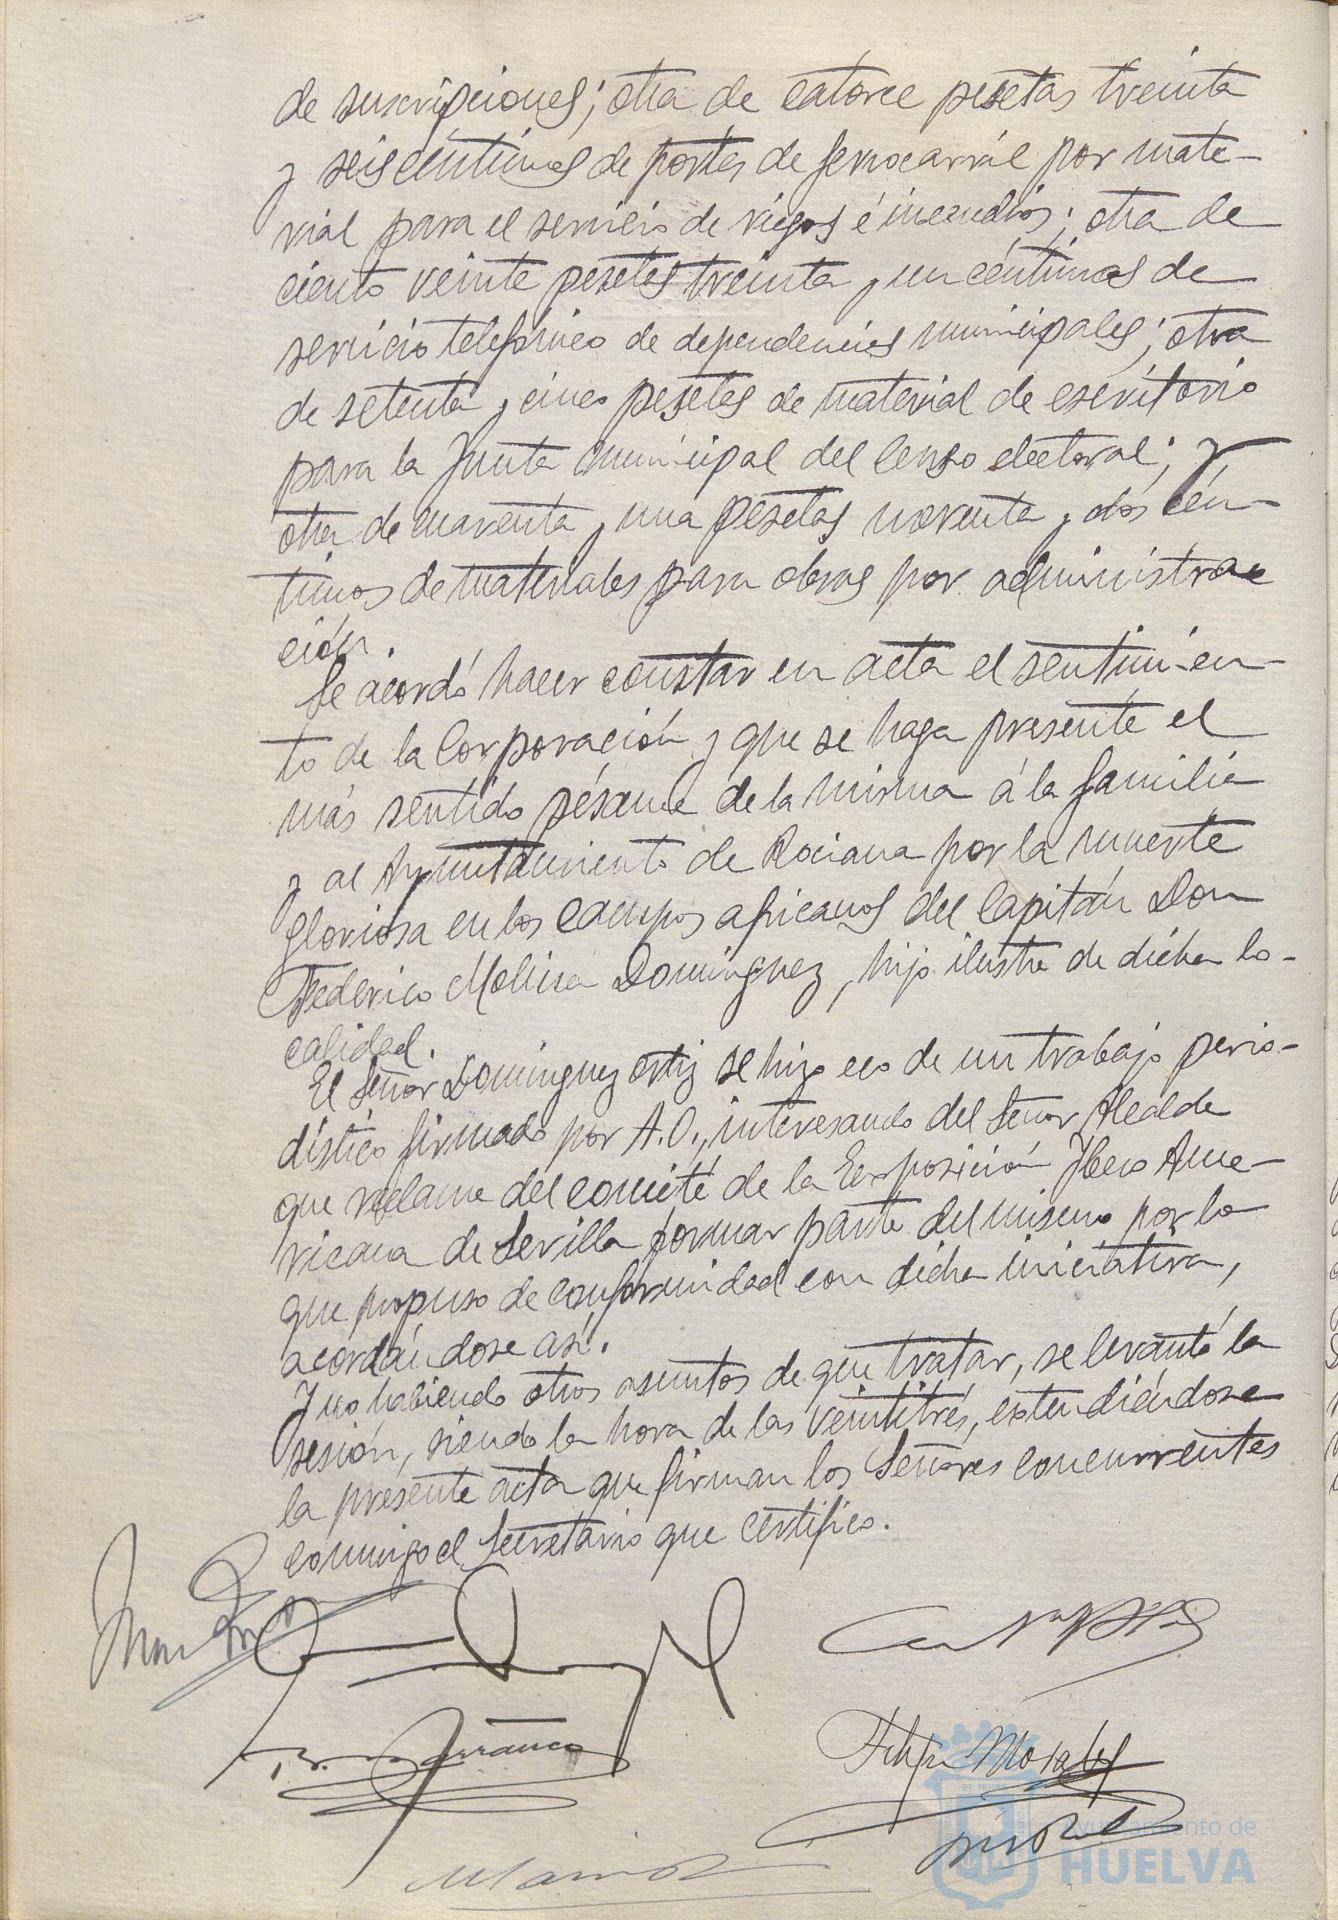 de suscripciones; otra de catorce pesetas treinta
y seis céntimos de portes de ferrocarril por mate-
rial para el servicio de riegos é incendios; otra de
ciento veinte pesetas treinta y un céntimos de
servicio telefónico de dependencias municipales; otra
de setenta y cinco pesetas de material de escritorio
para la Junta municipal del Censo electoral; y
otra de cuarenta y una pesetas noventa y dos cén-
timos de materiales para obras por administra-
ción.
Se acordó hacer constar en acta el sentimien-
to de la Corporación y que se haga presente el
más sentido pésame de la misma á la familia
y al Ayuntamiento de Rociana por la muerte
gloriosa en los campos africanos del Capitán Don
Federico Molina Dominguez, hijo ilustre de dicha lo-
calidad.
El Señor Dominguez Ortiz se hizo eco de un trabajo perio-
dístico firmado por A.O., interesando del Señor Alcalde
que reclame del comité de la Exposición Ibero Ame-
ricana de Sevilla formar parte del mismo por lo
que propuso de conformidad con dicha iniciativa,
acordándose así.
Y no habiendo otros asuntos de que tratar, se levantó la
sesión, siendo la hora de las veintitrés, extendiéndose
la presente acta que firman los Señores concurrentes
conmigo el Secretario que certifico.
Barranco
Felipe Morales
Ayuntamiento de
HUELVA